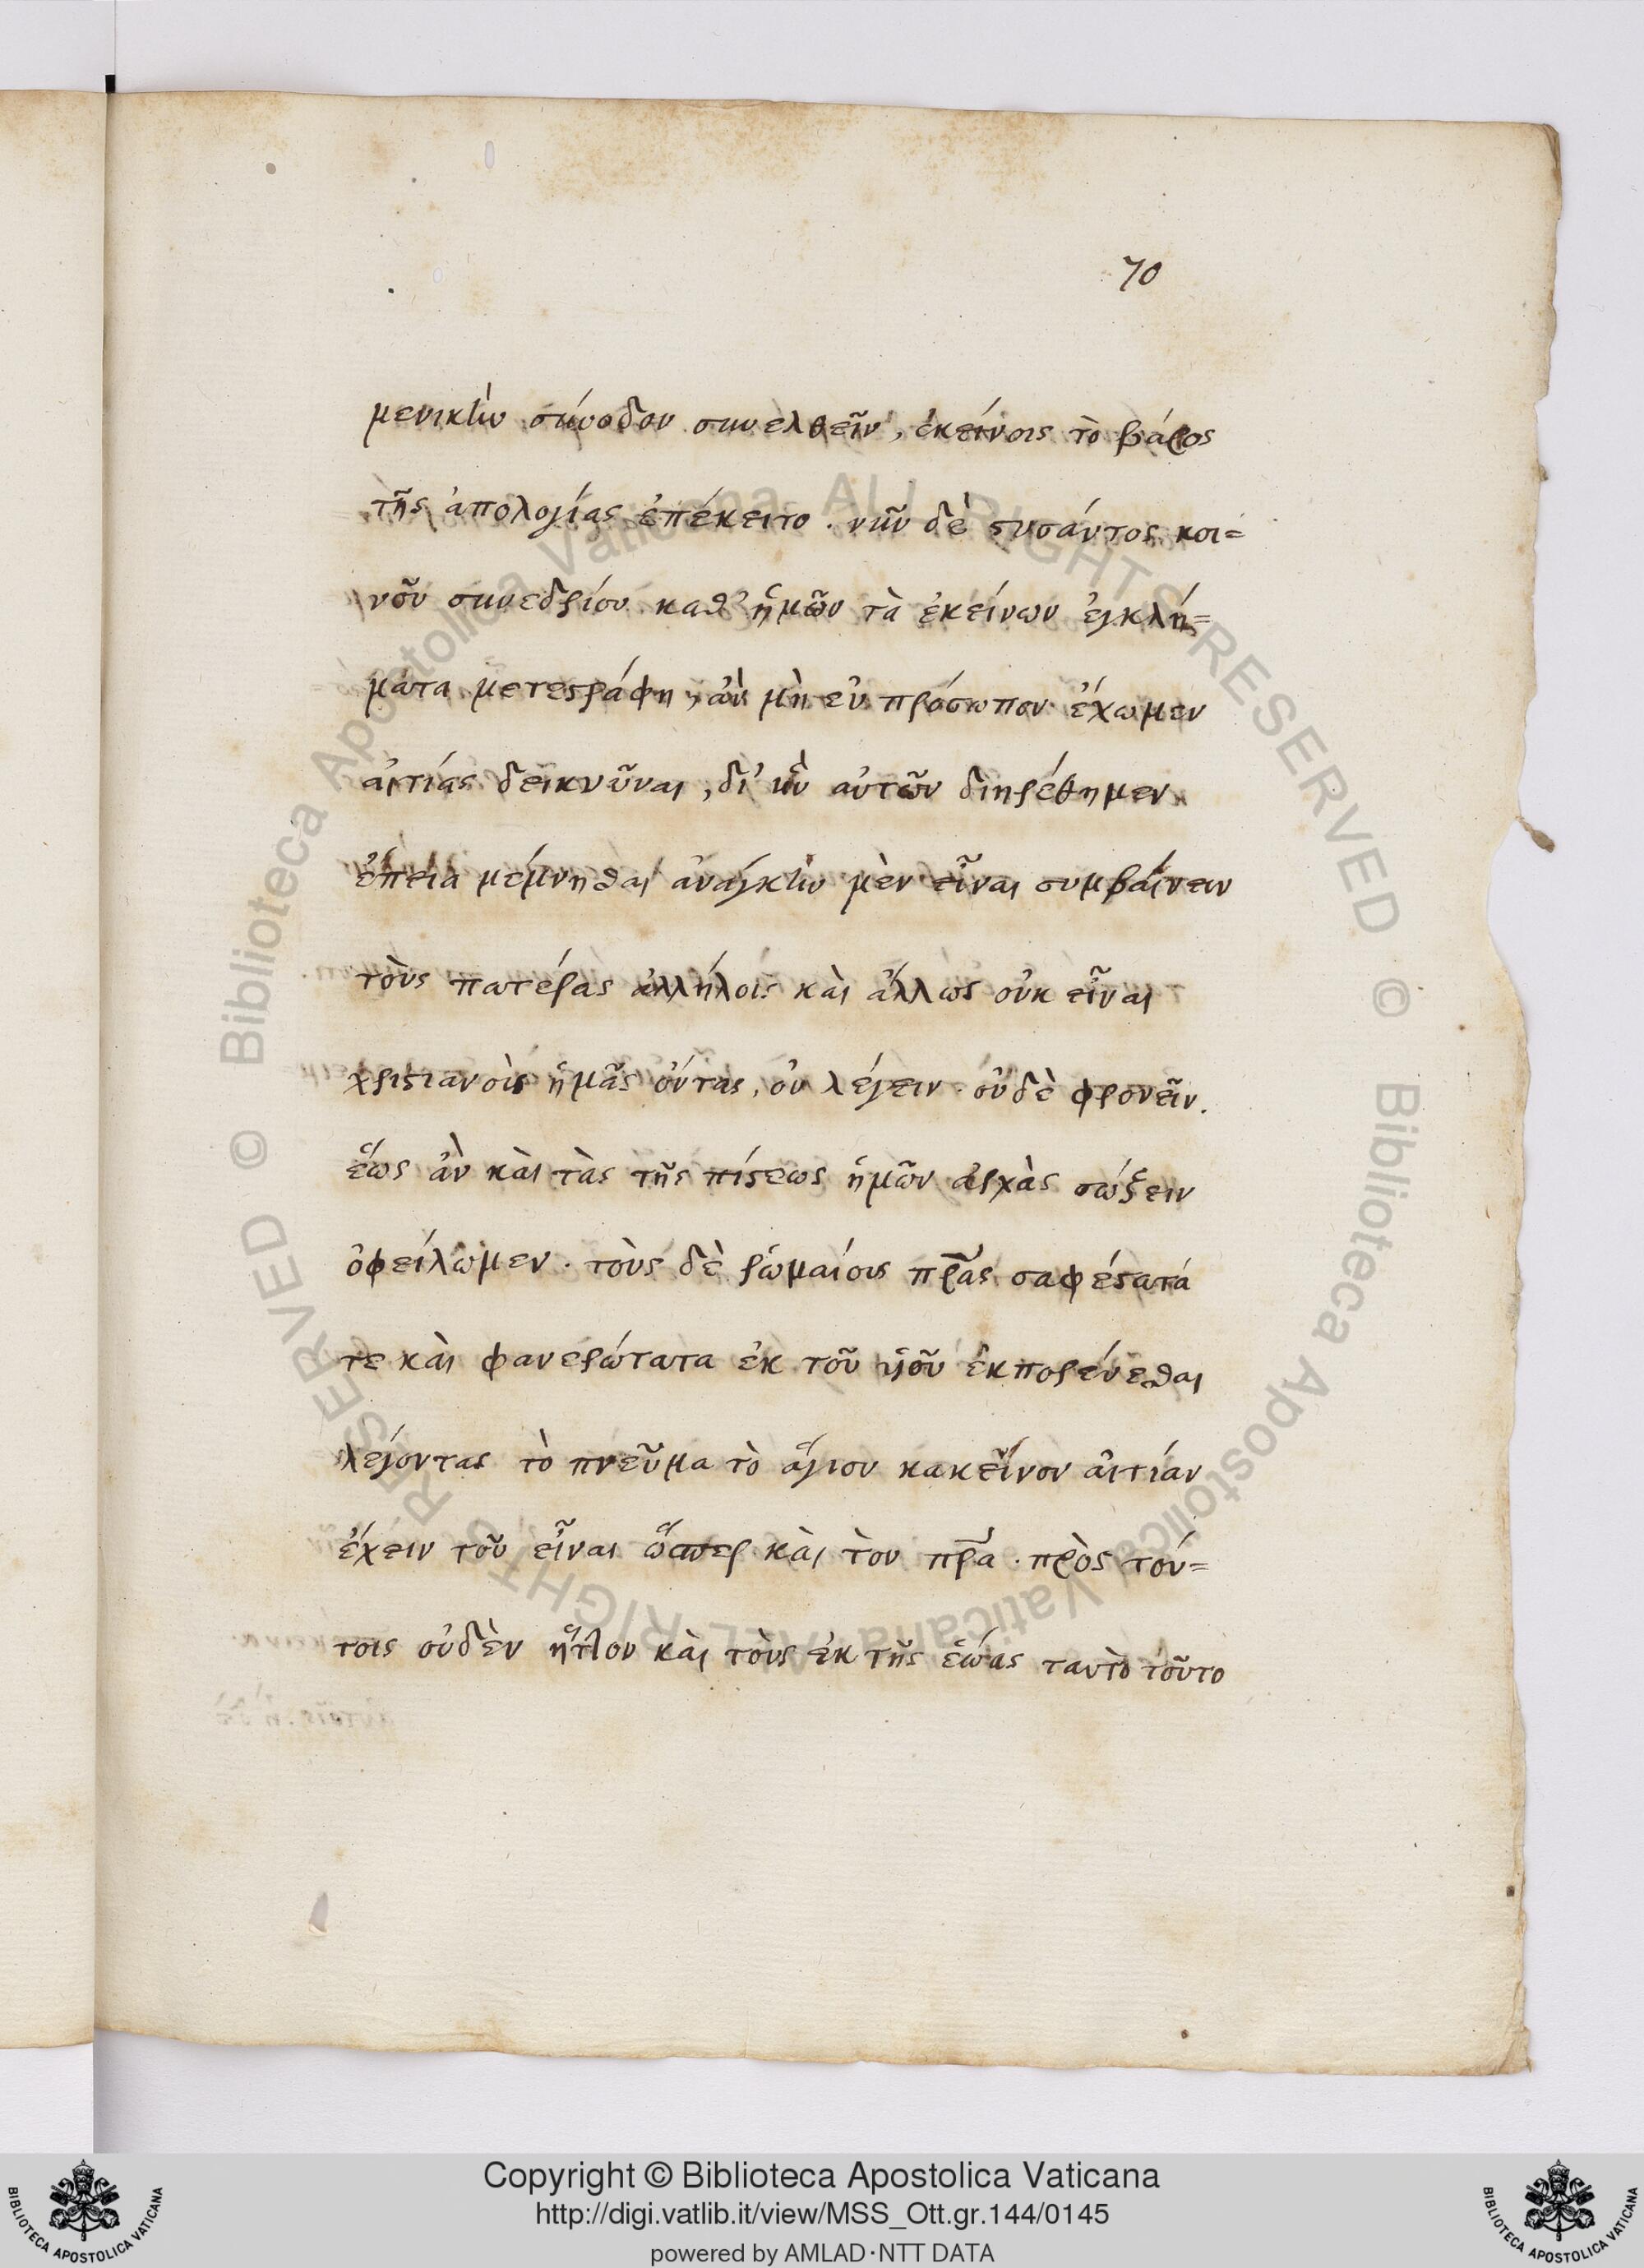 70
μενικὴν σύνοδον συνελθεῖν, ἐκείνοις τὸ βάρος
τῆς ἀπολογίας ἐπέκειτο. νῦν δὲ στησάντος κοι=
νοῦ συνεδρίου καθ' ἡμῶν τὰ ἐκείνων ἐγκλή=
ματα μετεγράφη, ἂν μὴ εὐπρόσωπον ἔχωμεν
αἰτίας δεικνῦναι, δι' ἣν αὐτῶν διηρέθημεν
ἔπεια μέμνησθαι ἀνάγκην μὲν εἶναι συμβαίνειν
τοὺς πατέρας ἀλλήλοις καὶ ἄλλως οὐκ εἶναι
χριστιανοὶς ἡμᾶς ὄντας, οὐ λέγειν οὐδὲ φρονεῖν.
ἕως ἂν καὶ τὰς τῆς πίστεως ἡμῶν ἀρχὰς σώζειν
ὀφείλωμεν. τοὺς δὲ ῥωμαίους πρ̅ας σαφέστατά
τε καὶ φανερώτατα ἐκ τοῦ ὑιοῦ ἐκπορεύεσθαι
λέγοντας τὸ πνεῦμα τὸ ἅγιον κακεῖνον αἰτίαν
ἔχειν τοῦ εἶναι ὥσπερ καὶ τὸν πρ̅α. πρὸς τού=
τοις οὐδὲν ἧττον καὶ τοὺς ἐκ τῆς ἑώας ταυτὸ τοῦτο
Copyright © Biblioteca Apostolica Vaticana
http://digi.vatlib.it/view/MSS_Ott.gr.144/0145
powered by AMLAD·NTT DATA
BIBLIOTECA APOSTOLICA VATICANA
BIBLIOTECA APOSTOLICA VATICANA
© Biblioteca Apostolica Vaticana ALL RIGHTS RESERVED © Biblioteca Apostolica Vaticana ALL RIGHTS RESERVED